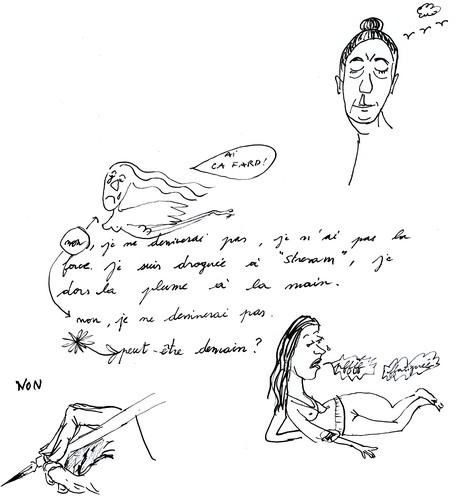 AÏ
CAFARD!
non, je ne dessinerai pas, je n'ai pas la
force. je suis droguée à "Shesam", je
dors la plume à la main.
non, je ne dessinerai pas.
peut-être demain?
NON